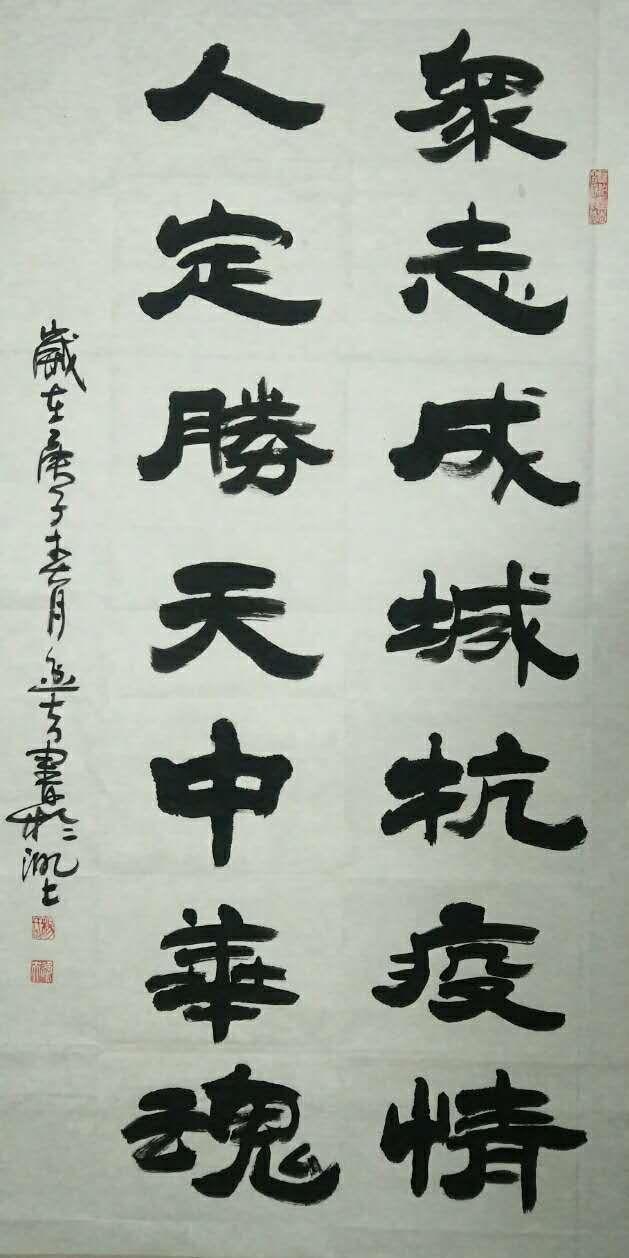 眾志成城抗疫情
人定勝天中華魂
歲在庚子春月